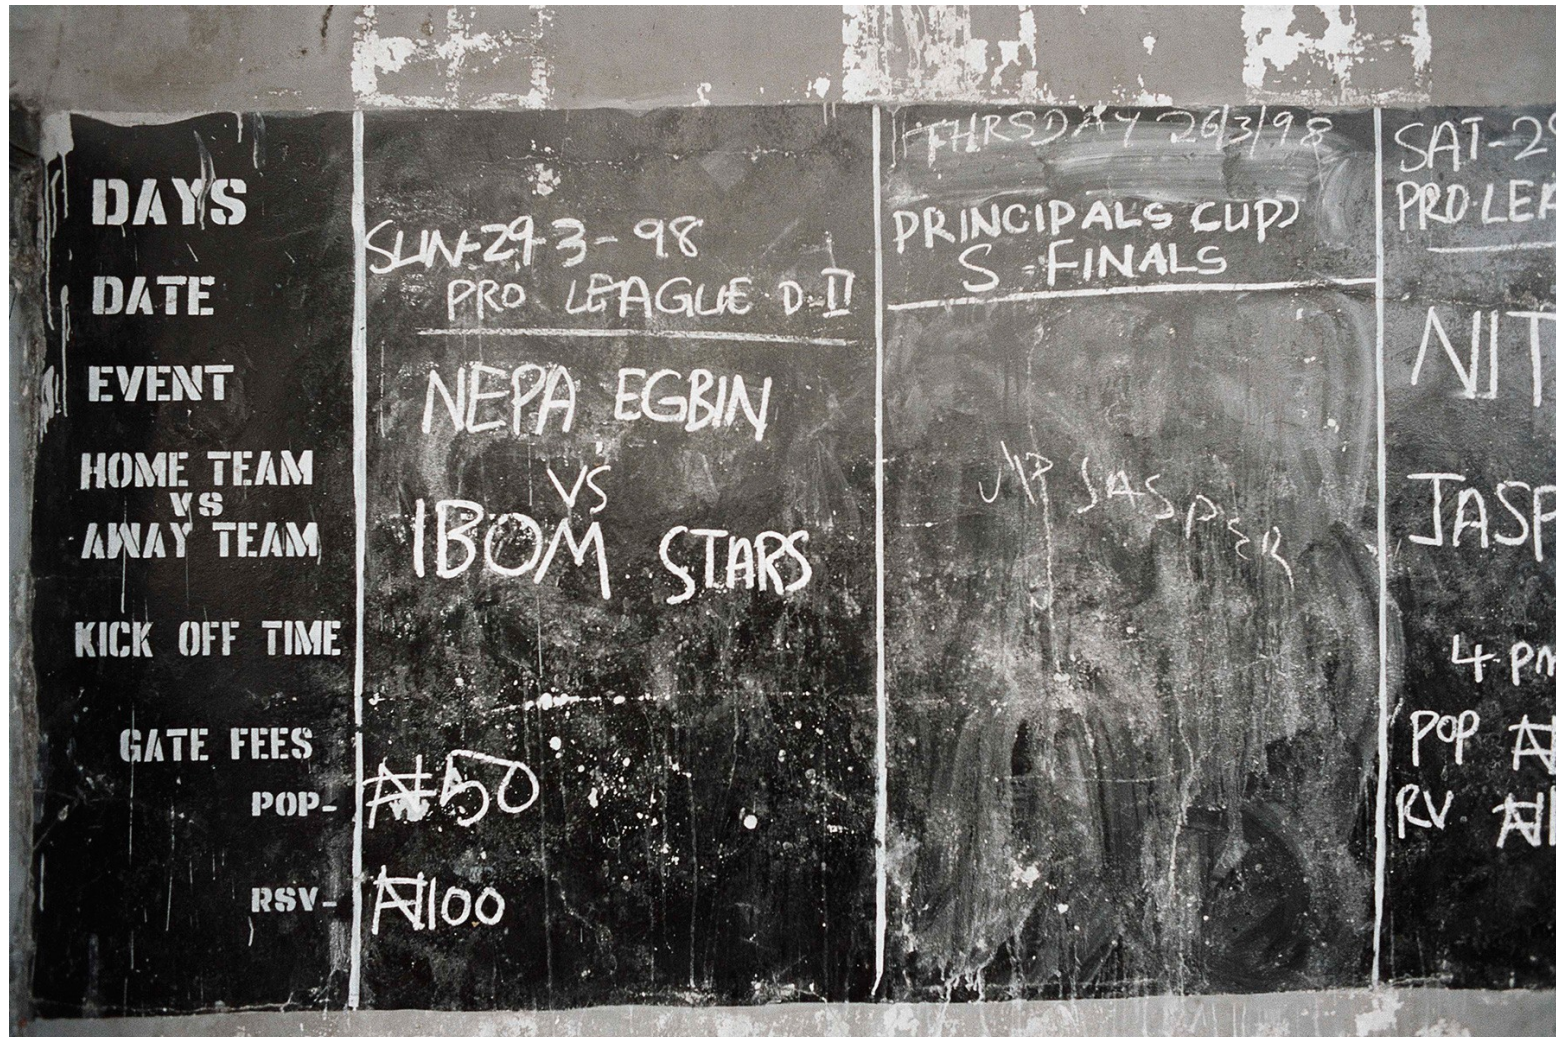 DAYS
DATE
EVENT
HOME TEAM
VS
AWAY TEAM
KICK OFF TIME
GATE FEES
POP-
RSV-
SUN-29-3-98
PRO LEAGUE D.II
NEPA EGBIN
VS
IBOM STARS
₦50
₦100
THRSDAY 26/3/98
PRINCIPALS CUP
S-FINALS
JASPER
SAT-
4 PM
POP ₦
RV ₦